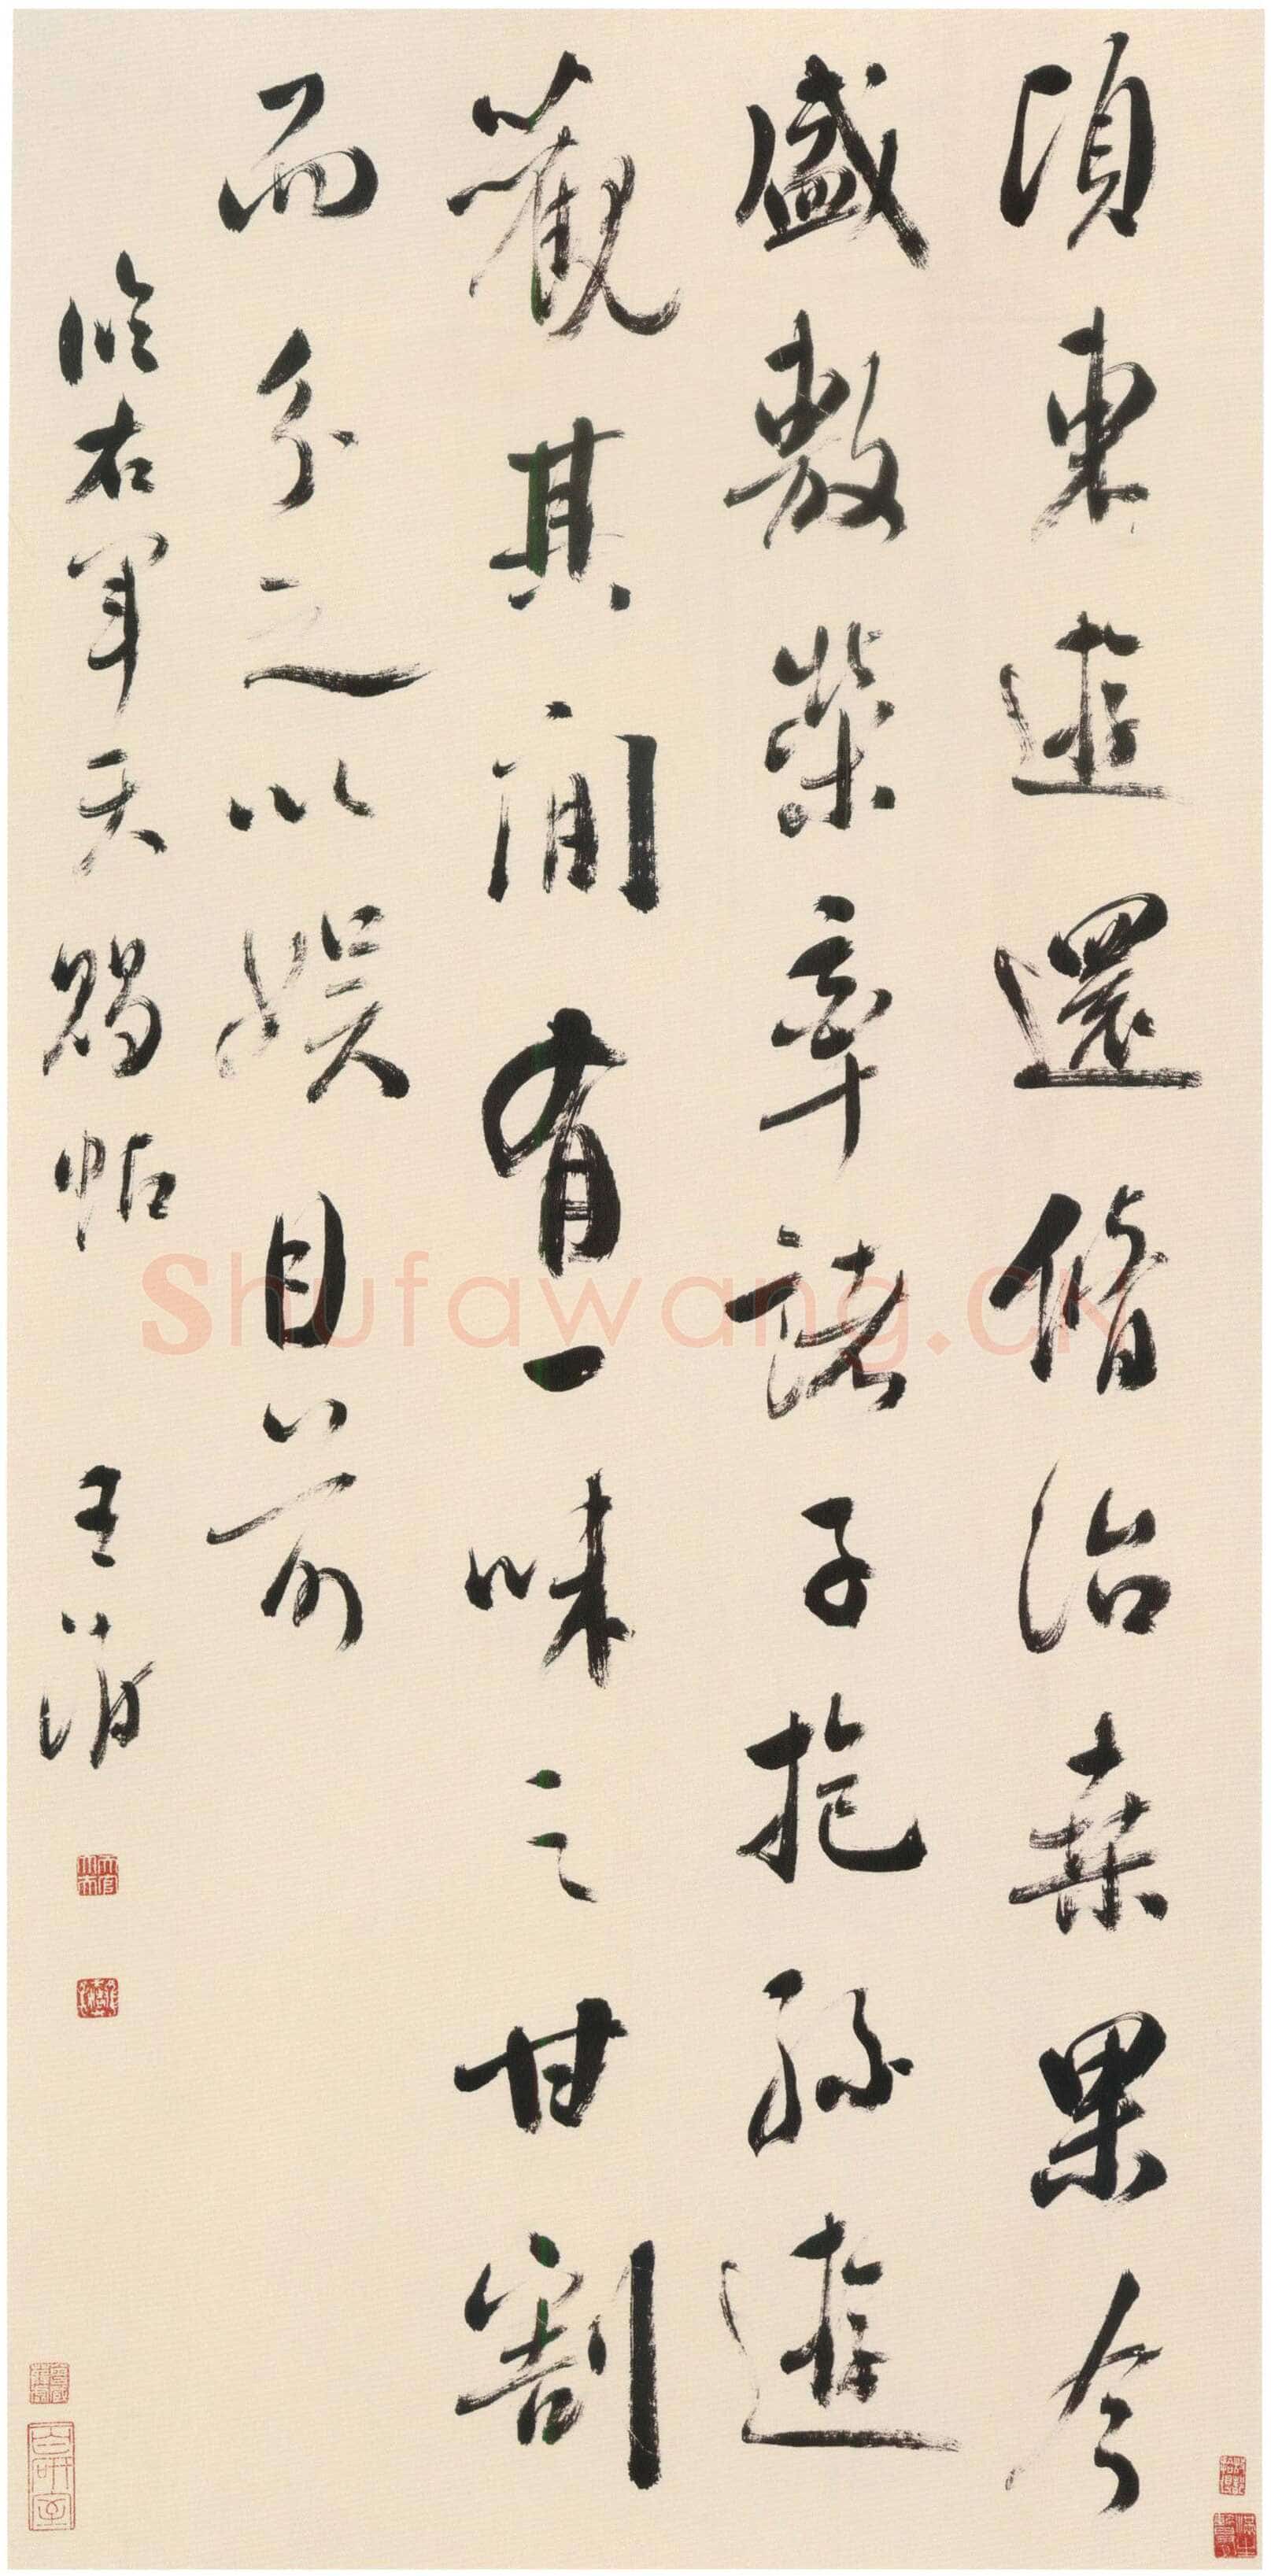 頃東遊還脩治桑果今
盛敷榮率諸子抱孫遊
觀其間有一味之甘割
而分之以娱目前
臨右軍天賜帖 王澍
Shufawang.cn